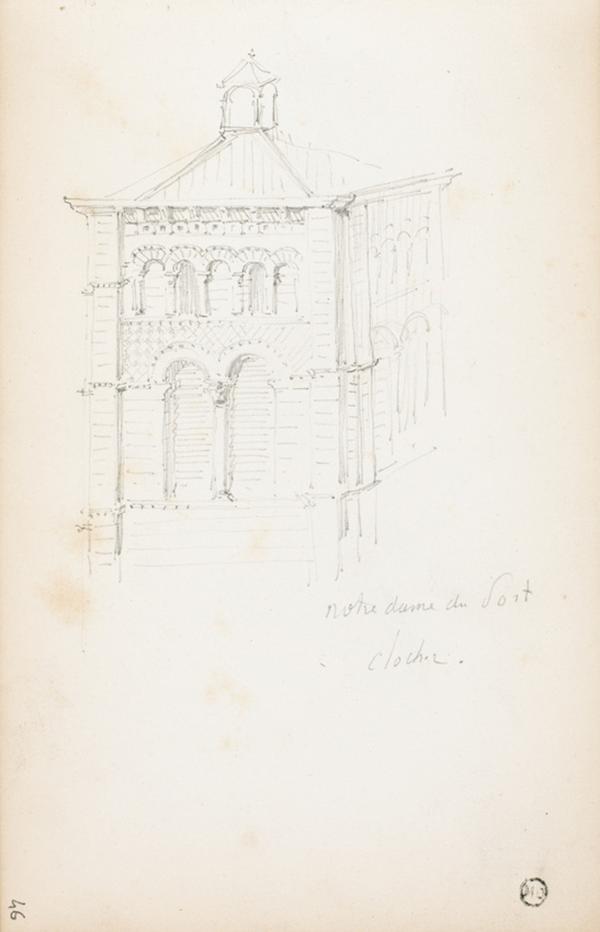 notre dame du Port
clocher.
46